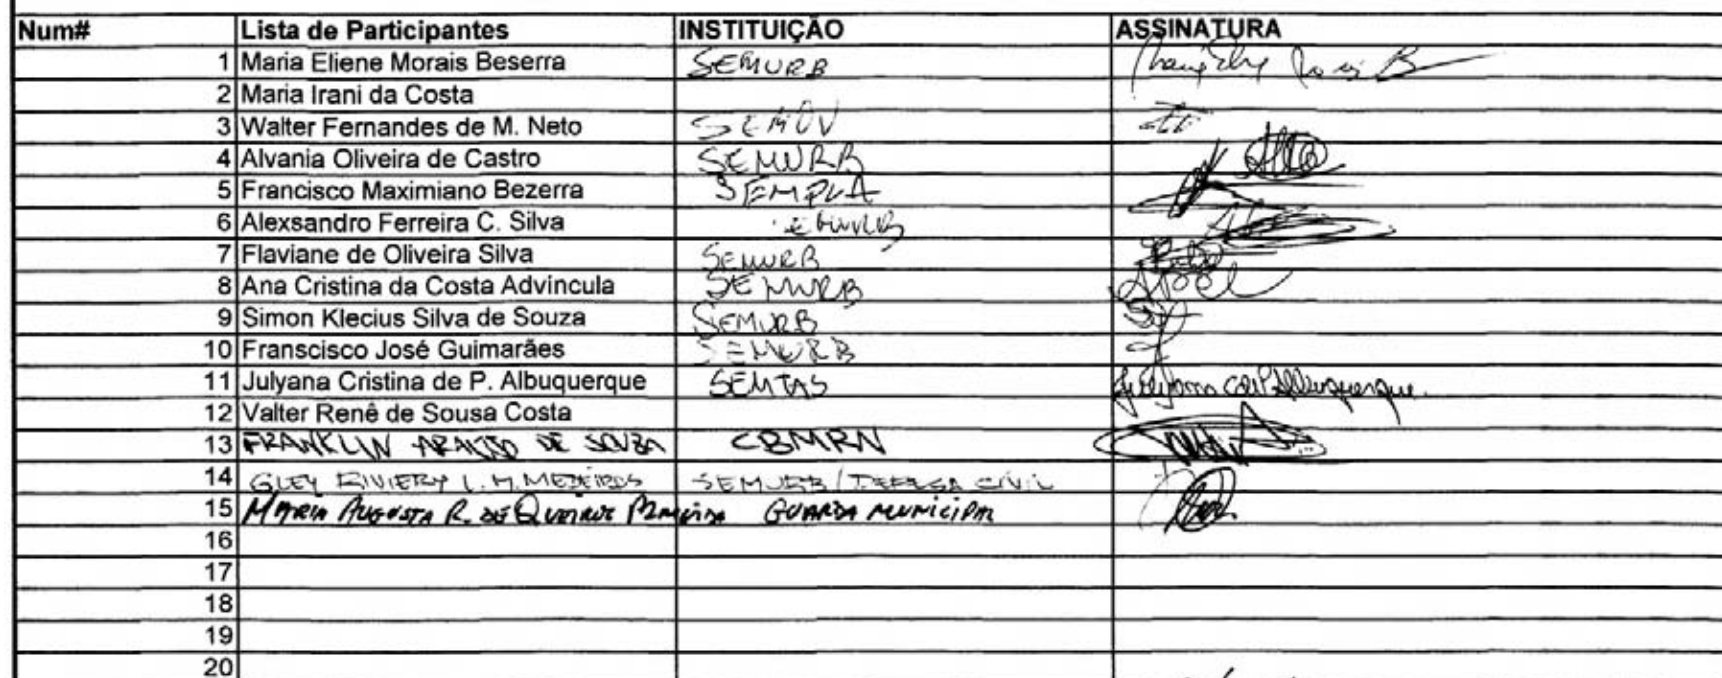 Num# Lista de Participantes INSTITUIÇÃO ASSINATURA
1 Maria Eliene Morais Beserra SEMURB
2 Maria Irani da Costa
3 Walter Fernandes de M. Neto SEMOV
4 Alvania Oliveira de Castro SEMURB
5 Francisco Maximiano Bezerra SEMPLA
6 Alexsandro Ferreira C. Silva SEMURB
7 Flaviane de Oliveira Silva SEMURB
8 Ana Cristina da Costa Advincula SEMURB
9 Simon Klecius Silva de Souza SEMURB
10 Franscisco José Guimarães SEMURB
11 Julyana Cristina de P. Albuquerque SEMTAS
12 Valter Renê de Sousa Costa
13 FRANKLIN ARAUJO DE SOUZA CBMRN
14 GLEY RIVIERY L. M. MEDEIROS SEMURB / DEFESA CIVIL
15 MARIA AUGUSTA R. DE QUEIROZ GUARDA MUNICIPAL
16
17
18
19
20